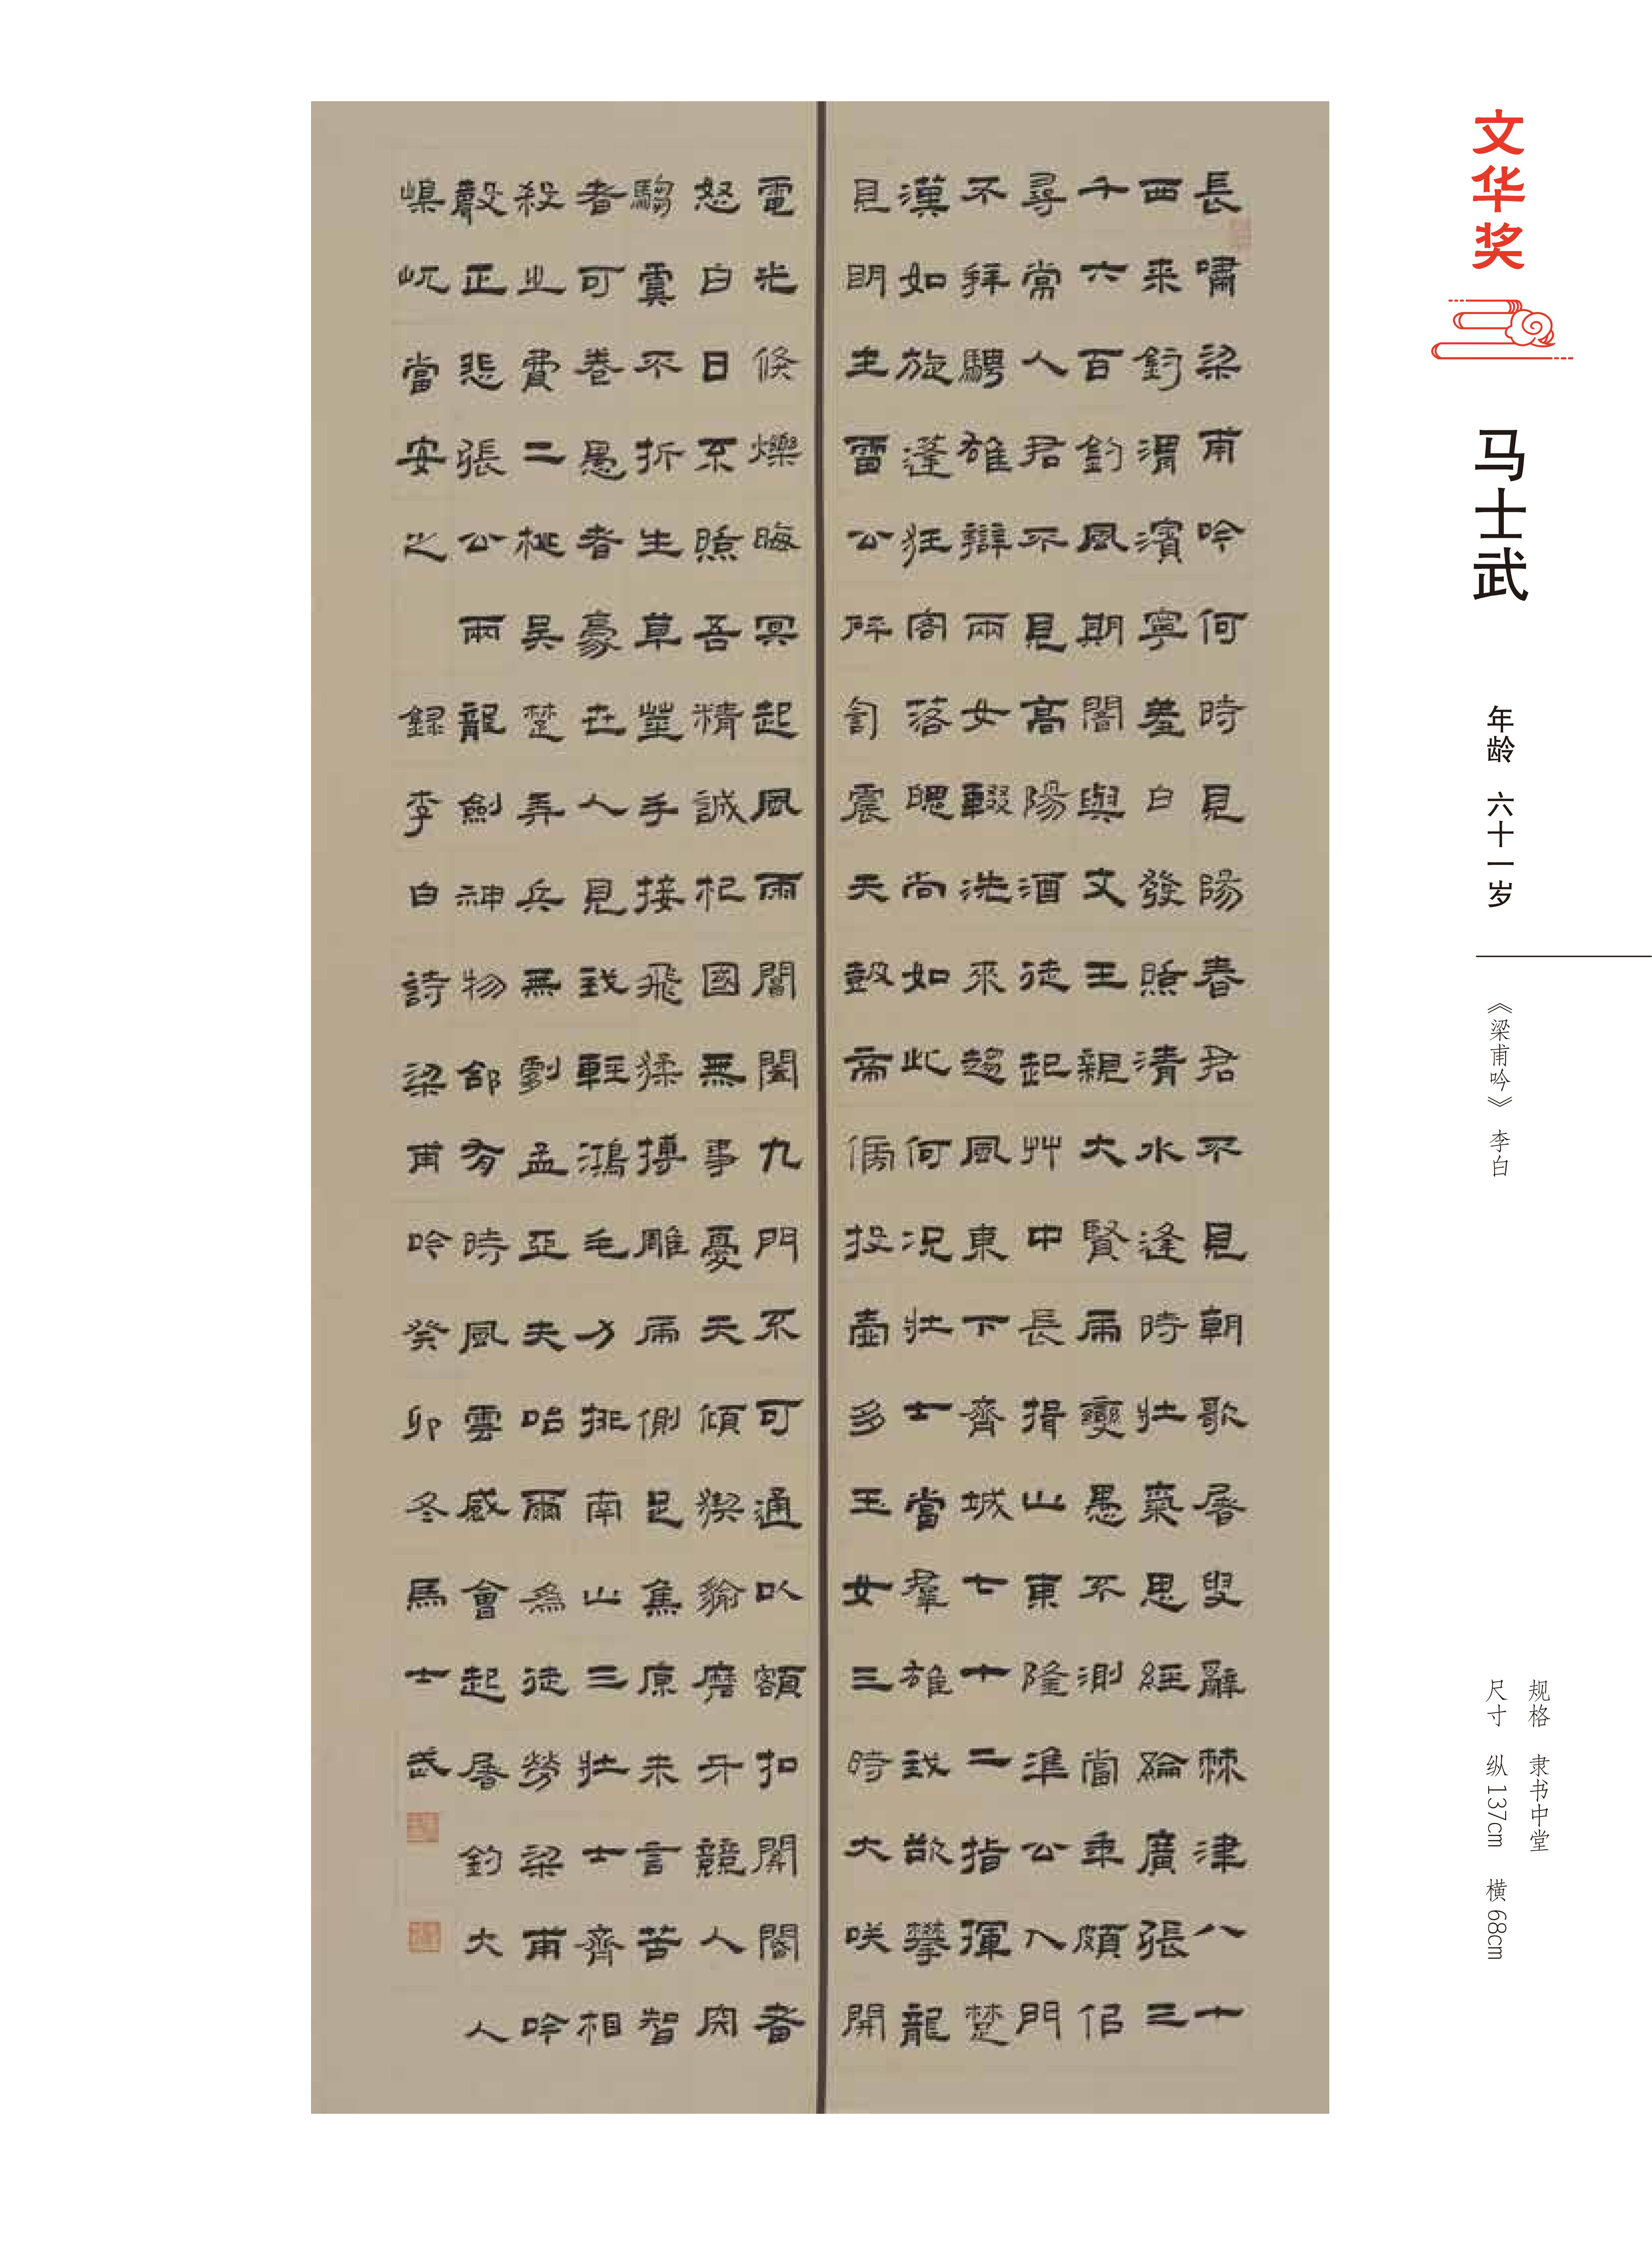 文华奖
马士武
年龄 六十一岁
《梁甫吟》 李白
规格 隶书中堂
尺寸 纵137cm 横68cm
長嘯梁甫吟何時見陽春君不見朝歌屠叟辭棘津八十
西来釣渭濱寧羞白發照清水逢時壯氣思經綸廣張三
千六百釣風期闇與文王親大賢虎變愚不測當年頗似
尋常人君不見高陽酒徒起艸中長揖山東隆準公入門
不拜騁雄辯兩女輟洗來趨風東下齊城七十二指揮楚
漢如旋蓬狂客落魄尚如此何況壯士當羣雄我欲攀龍
見明主雷公砰訇震天鼓帝傍投壺多玉女三時大咲開
電光倏爍晦冥起風雨閶闔九門不可通以額扣關閽者
怒白日不照吾精誠杞國無事憂天傾猰貐磨牙競人肉
騶虞不折生草莖手接飛猱搏雕虎側足焦原未言苦智
者可卷愚者豪世人見我輕鴻毛力排南山三壯士齊相
殺之費二桃吳楚弄兵無劇孟亞夫咍爾為徒勞梁甫吟
聲正悲張公兩龍劍神物郃有時風雲感會起屠釣大人
嵲屼當安之 錄李白詩梁甫吟癸卯冬馬士武